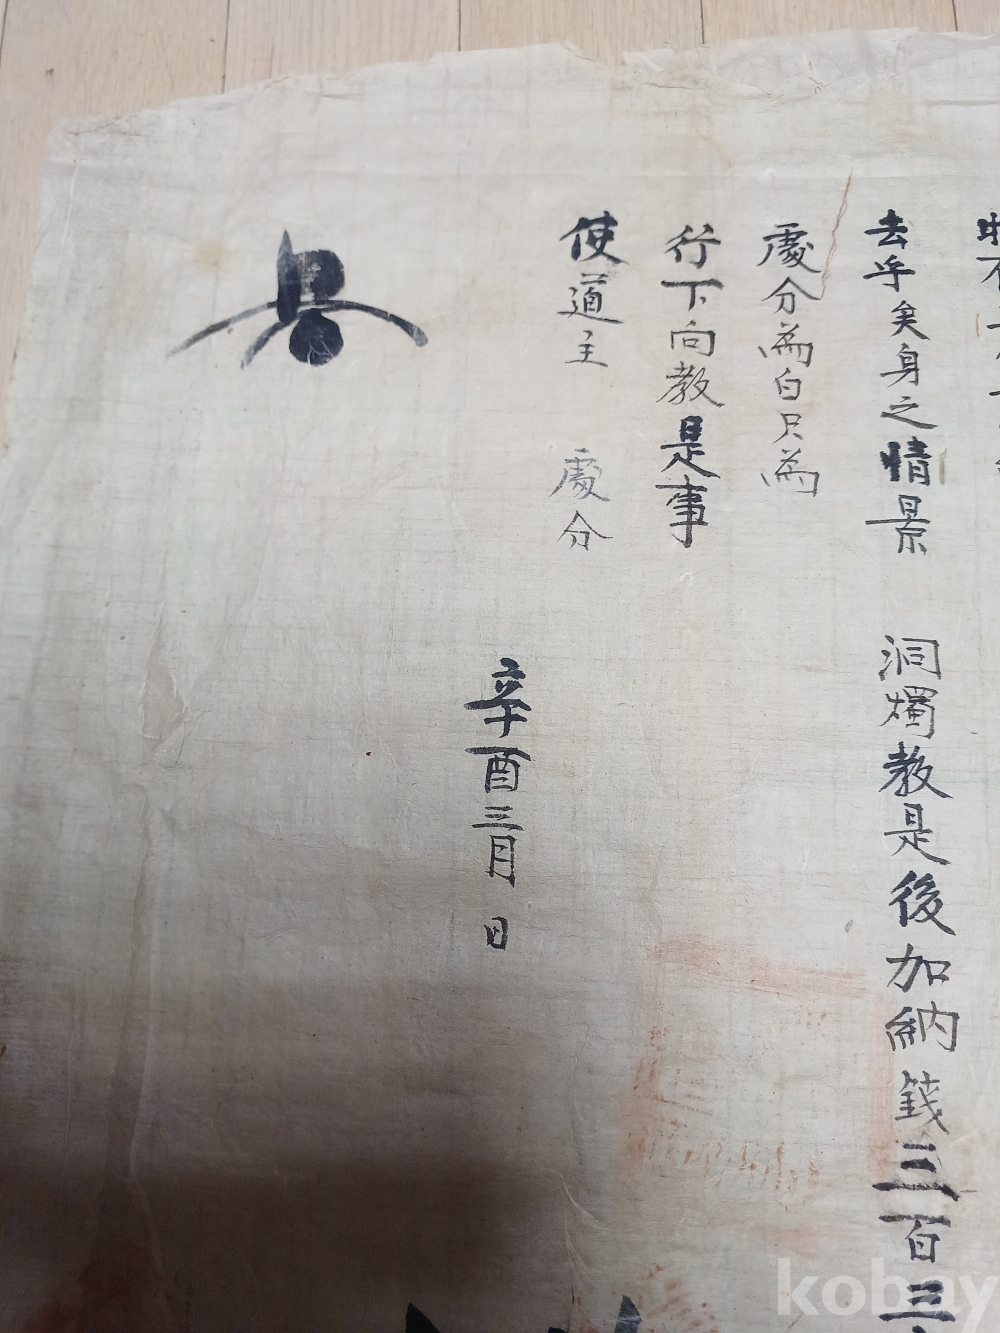 去乎矣身之情景 洞燭教是後加納錢三百三
處分爲白只爲
行下向教是事
使道主 處分
辛酉三月 日
kobay